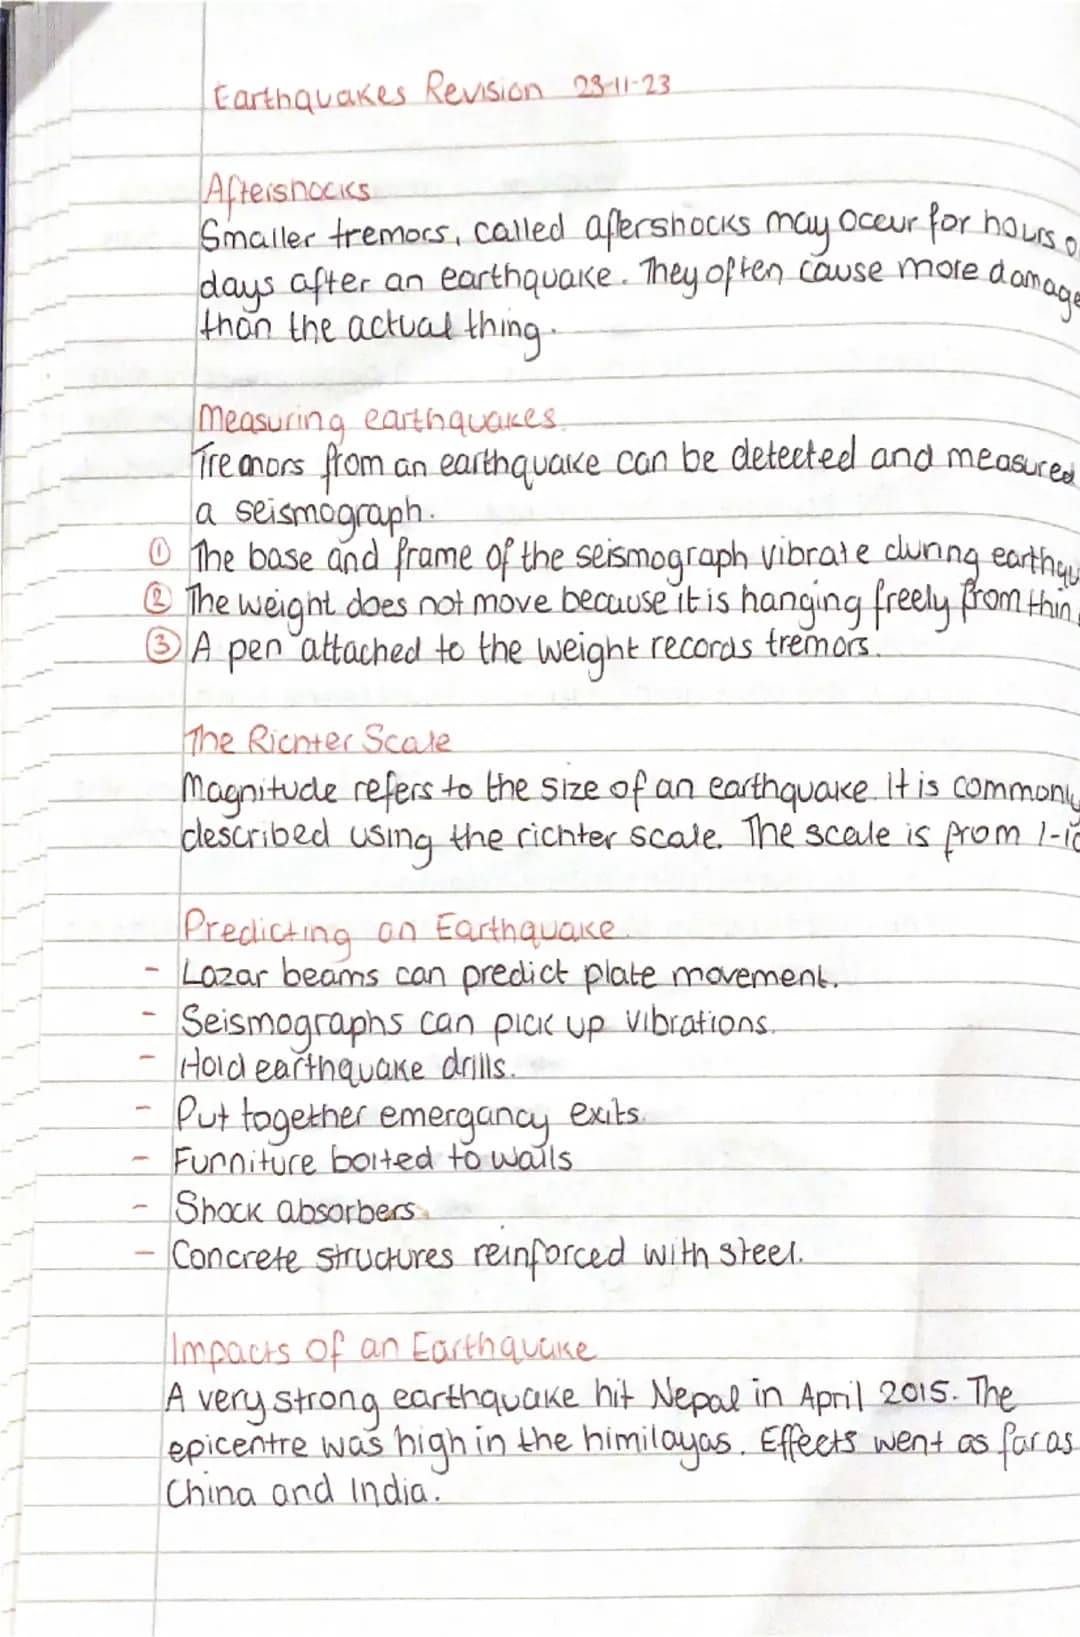 Earthquakes Revision 23-11-23
Aftershocks
Smaller tremors, called aftershocks may occur for hours o
days after an earthquake. They often cause more damage
than the actual thing.
Measuring earthquakes.
Tremors from an earthquake can be detected and measured
a seismograph.
① The base and frame of the seismograph vibrate during earthqu
② The weight does not move because it is hanging freely from thin
③ A pen attached to the weight records tremors.
The Richter Scale
Magnitude refers to the size of an earthquake. It is commonly
described using the richter scale. The scale is from 1-10
Predicting an Earthquake.
- Lazar beams can predict plate movement.
- Seismographs can pick up vibrations.
- Hold earthquake drills.
- Put together emergancy exits.
- Furniture bolted to walls
- Shock absorbers.
- Concrete structures reinforced with steel.
Impacts of an Earthquake
A very strong earthquake hit Nepal in April 2015. The
epicentre was high in the himilayas. Effects went as far as
China and India.